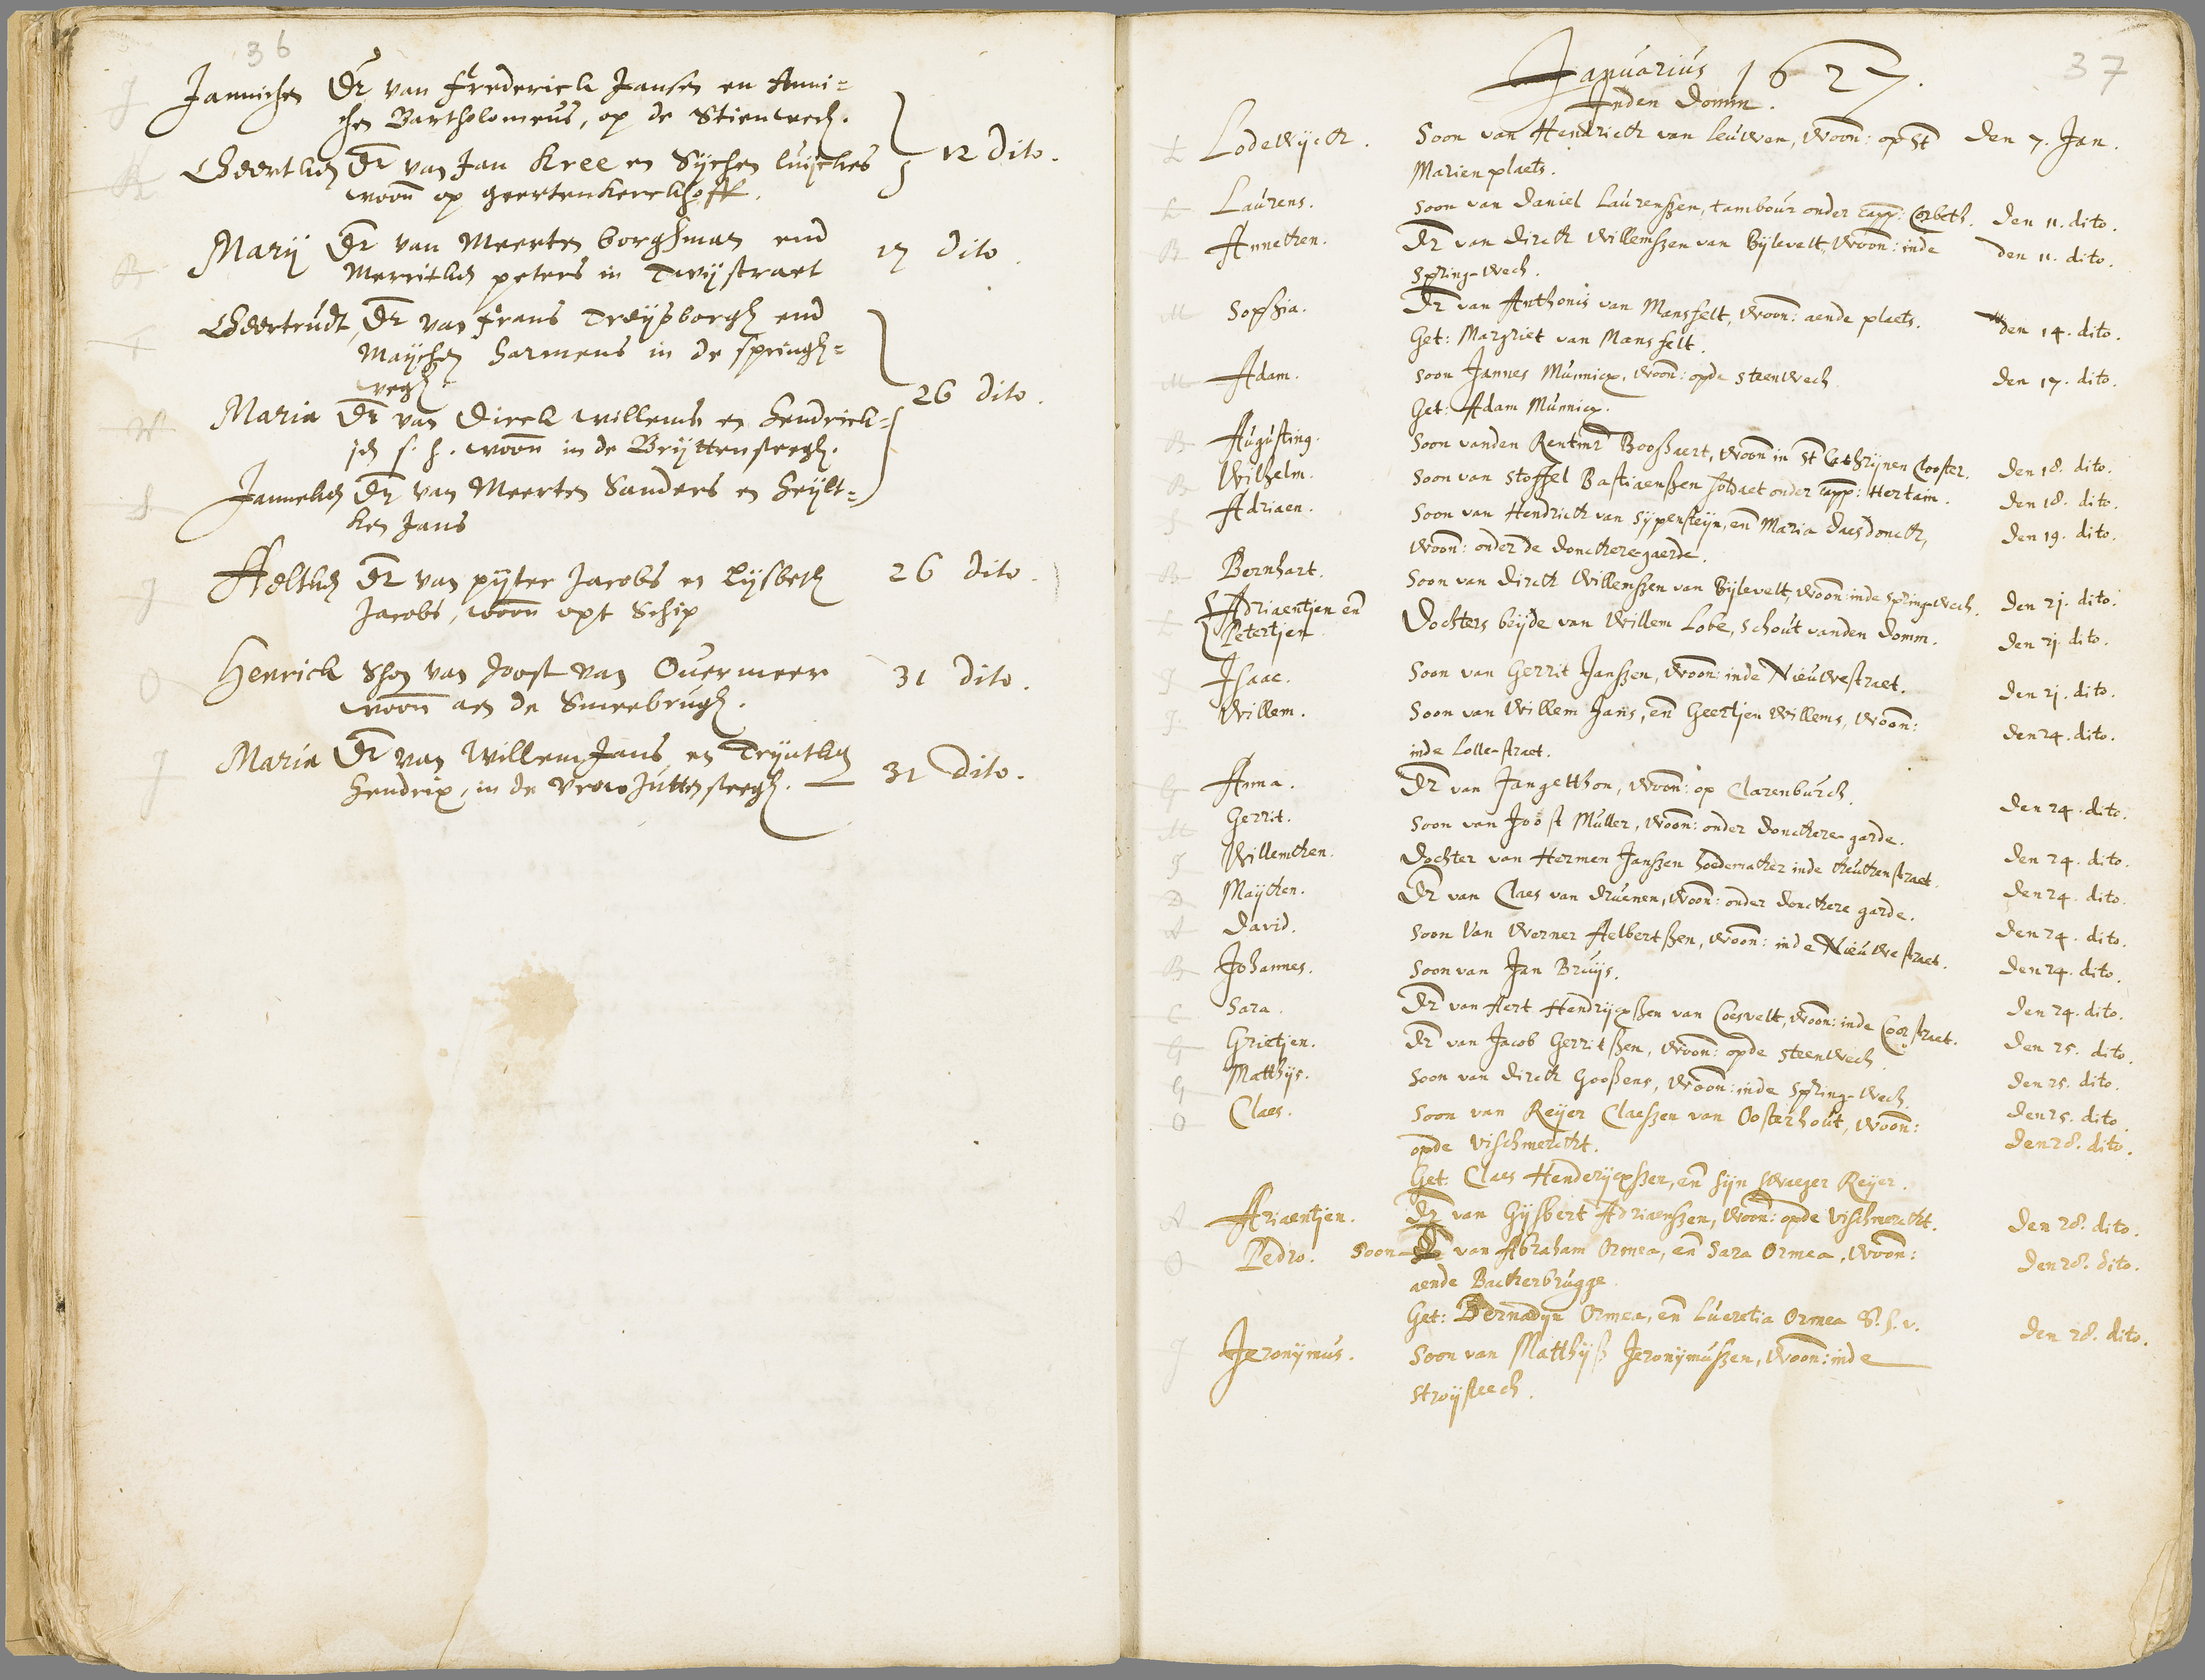 36
J Jannichen Dr van Frederick Jansen en Anni=
chen Bartholomeus, op de Stienwech.
K Geertken Dr van Jan Kree en Sijchen luijckes
woon op geertenkerckhoff.
12 dito.
B Marij Dr van Meerten borghman end
Merritken peters in Twijstraet
17 dito.
T Geertrudt, Dr van frans Treijsborgh end
Maijchen harmens in de springh=
wegh
W Maria Dr van Dirck willems en hendrick=
jen s. h. woon in de Brijttensteegh.
26 dito.
S Janneken Dr van Meerten Sanders en heijlt=
ken Jans
J Aeltken Dr van pijter Jacobs en Lijsbeth
Jacobs, woon opt Schip
26 dito.
O Henrick Shon van Joost van Overmeer
woon aen de Smeebrugh.
31 dito.
J Maria Dr van Willem Jans en Trijntken
hendrix, in de vrow Juttensteegh.
31 dito.
37
Januarius 1627.
Inden Domm.
L Lodewijck. Soon van Hendrick van leuwen, woon: op St Den 7. Jan.
Marien plaets.
L Laurens. Soon van Daniel Laurenszen, tambour onder capp: Corbeth. Den 11. dito.
B Anneken. Dr van Dirck Willemszen van Bijlevelt, woon: inde Den 11. dito.
Spring-wech.
M Sophia. Dr van Anthonis van Mansfelt, woon: aende plaets. Den 14. dito.
Get: Margriet van Mansfelt.
M Adam. Soon Jannes Munnicx, woon: opde Steenwech Den 17. dito.
Get: Adam Munnicx.
B Augusting. Soon vanden Rentmr Boossaert, woon in St Cathrijnen Clooster. Den 18. dito.
B Wilhelm. Soon van Stoffel Bastiaenszen soldaet onder capp: Hertain. Den 18. dito.
S Adriaen. Soon van Hendrick van Sijpensteijn, en Maria Daesdonck, Den 19. dito.
woon: onder de donckeregaerde.
B Bernhart. Soon van Dirck Willemszen van Bijlevelt, woon: inde Spring-wech. Den 21. dito.
L Adriaentjen en
Petertjen. Dochters beijde van Willem Lobe, Schout vanden Domm. Den 21. dito.
J Isaac. Soon van Gerrit Janszen, woon: inde Nieuwestraet. Den 21. dito.
J Willem. Soon van Willem Jans, en Geertjen Willems, woon: Den 24. dito.
inde Lolle-straet.
G Anna. Dr van Jan getthon, woon: op Clarenburch. Den 24. dito.
M Gerrit. Soon van Joost Muller, woon: onder Donckere-garde. Den 24. dito.
J Willemken. Dochter van Hermen Janszen hoedemaker inde keukenstraet. Den 24. dito.
D Maijken. Dr van Claes van Druenen, woon: onder Donckere garde. Den 24. dito.
A David. Soon Van Werner Aelbertszen, woon: inde Nieuwestraet. Den 24. dito.
B Johannes. Soon van Jan Bruijs. Den 24. dito.
C Sara. Dr van Aert Hendrijcxszen van Coesvelt, woon: inde Coorstraet. Den 25. dito.
G Grietjen. Dr van Jacob Gerritszen, woon: opde Steenwech Den 25. dito.
G Matthijs. Soon van Dirck Goossens, woon: inde Spring-wech. Den 25. dito.
O Claes. Soon van Reijer Claeszen van Oosterhout, woon: Den 28. dito.
opde vischmerckt.
Get: Claes Henderijcxszen, en sijn swaeger Reijer.
A Ariaentjen. Dr van Gijsbert Adriaenszen, woon: opde vischmerckt. Den 28. dito.
O Pedro. Soon van Abraham Ormea, en Sara Ormea, woon: Den 28. dito.
aende Backerbrugge.
Get: Bernadijn Ormea, en Lucretia Ormea S. h. v.
J Jeronijmus. Soon van Matthijs Jeronijmuszen, woon: inde Den 28. dito.
Stroijsteech.